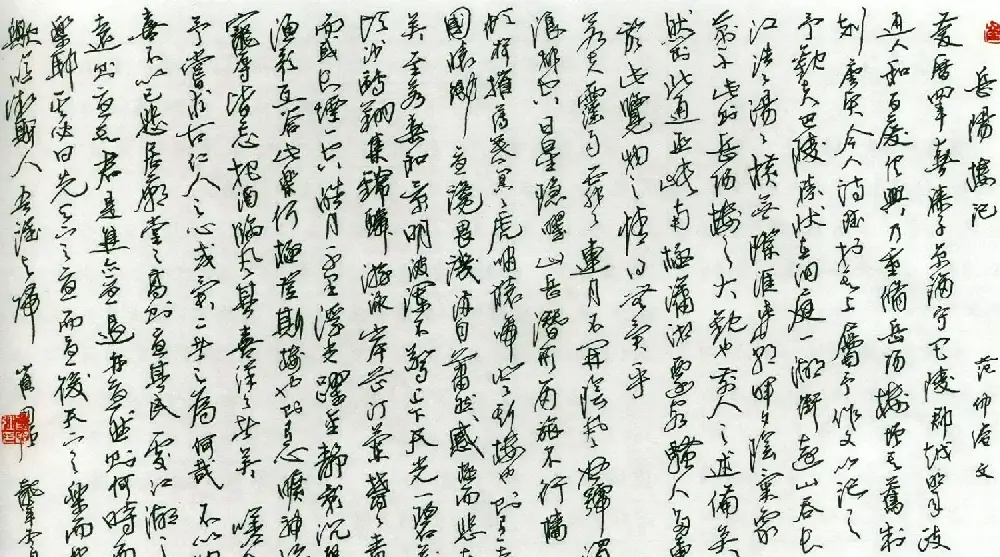 岳陽樓記 范仲淹文
慶曆四年春滕子京謫守巴陵郡越明年政
通人和百廢俱興乃重脩岳陽樓增其舊制
刻唐賢今人詩賦於其上屬予作文以記之
予觀夫巴陵勝狀在洞庭一湖銜遠山吞長
江浩浩湯湯橫無際涯朝暉夕陰氣象萬
千此則岳陽樓之大觀也前人之述備矣
然則北通巫峽南極瀟湘遷客騷人多會
於此覽物之情得無異乎
若夫霪雨霏霏連月不開陰風怒號濁
浪排空日星隱曜山岳潛形商旅不行檣
傾楫摧薄暮冥冥虎嘯猿啼登斯樓也則有去
國懷鄉憂讒畏譏滿目蕭然感極而悲者
矣至若春和景明波瀾不驚上下天光一碧萬
頃沙鷗翔集錦鱗游泳岸芷汀蘭鬱鬱青
而或長煙一空皓月千里浮光躍金靜影沉璧
漁歌互答此樂何極登斯樓也則有心曠神怡
寵辱皆忘把酒臨風其喜洋洋者矣 嗟夫
予嘗求古仁人之心或異二者之為何哉 不以物
喜不以己悲居廟堂之高則憂其民處江湖之
遠則憂其君是進亦憂退亦憂然則何時而
樂耶其必曰先天下之憂而憂後天下之樂而樂
歟噫微斯人吾誰與歸